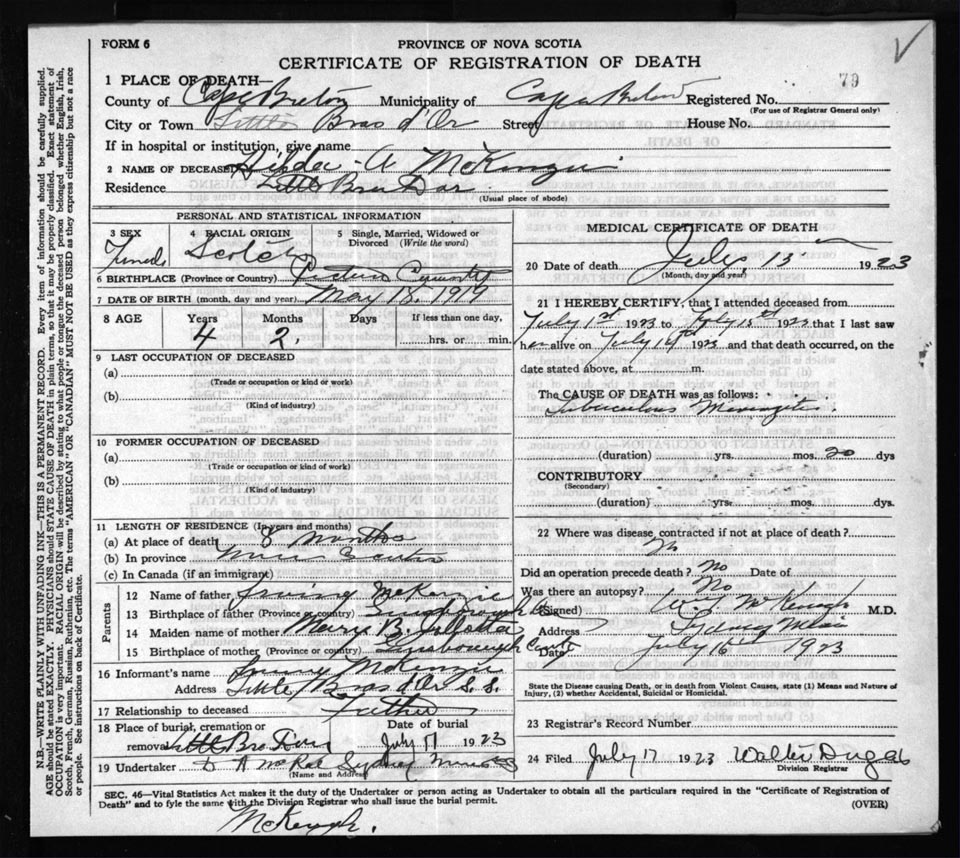 FORM 6
PROVINCE OF NOVA SCOTIA
CERTIFICATE OF REGISTRATION OF DEATH
79
1 PLACE OF DEATH—
County of Cape Breton Municipality of Cape Breton Registered No.
(For use of Registrar General only)
City or Town Little Bras d'Or Street House No.
If in hospital or institution, give name
2 NAME OF DECEASED Hilda A McKenzie
Residence Little Bras Dor
(Usual place of abode)
PERSONAL AND STATISTICAL INFORMATION
3 SEX 4 RACIAL ORIGIN 5 Single, Married, Widowed or Divorced (Write the word)
Female Scotch
6 BIRTHPLACE (Province or Country) County
7 DATE OF BIRTH (month, day and year) May 18, 1919
8 AGE Years Months Days If less than one day,
4 2 hrs. or min.
9 LAST OCCUPATION OF DECEASED
(a)
(Trade or occupation or kind or work)
(b)
(Kind of industry)
10 FORMER OCCUPATION OF DECEASED
(a)
(Trade or occupation or kind or work)
(b)
(Kind of industry)
11 LENGTH OF RESIDENCE (In years and months)
(a) At place of death 8 Months
(b) In province Nova Scotia
(c) In Canada (if an immigrant)
Parents
12 Name of father Irving McKenzie
13 Birthplace of father (Province or country)
14 Maiden name of mother Mary B.
15 Birthplace of mother (Province or country)
16 Informant's name McKenzie
Address Little Bras d'Or
17 Relationship to deceased Father
18 Place of burial, cremation or removal Little Bras Dor Date of burial July 17 1923
19 Undertaker D A McRae Sydney Mines
(Name and Address)
MEDICAL CERTIFICATE OF DEATH
20 Date of death July 15 1923
(Month, day and year)
21 I HEREBY CERTIFY, that I attended deceased from
July 1st 1923 to July 15th 1923 that I last saw
her alive on July 14th 1923 and that death occurred, on the
date stated above, at m.
The CAUSE OF DEATH was as follows:
Tuberculous Meningitis
(duration) yrs. mos. 20 dys
CONTRIBUTORY
(Secondary)
(duration) yrs. mos. dys.
22 Where was disease contracted if not at place of death?
Did an operation precede death? No Date of
Was there an autopsy? No
(Signed) McKeough M.D.
Address Sydney Mines
Date July 16th 1923
State the Disease causing Death, or in death from Violent Causes, state (1) Means and Nature of
Injury, (2) whether Accidental, Suicidal or Homicidal.
23 Registrar's Record Number
24 Filed July 17 1923 Walter Dugal
Division Registrar
SEC. 46—Vital Statistics Act makes it the duty of the Undertaker or person acting as Undertaker to obtain all the particulars required in the "Certificate of Registration of
Death" and to fyle the same with the Division Registrar who shall issue the burial permit.
(OVER)
McKeough.
N.B.—WRITE PLAINLY WITH UNFADING INK—THIS IS A PERMANENT RECORD. Every item of information should be carefully supplied.
AGE should be stated EXACTLY. PHYSICIANS should STATE CAUSE OF DEATH in plain terms, so that it may be properly classified. Exact statement of
OCCUPATION is very important. RACIAL ORIGIN will be described by stating to what people or tongue the deceased person belonged, whether English, Irish,
Scotch, French, German, Russian, Ruthenian, etc. The terms "AMERICAN" OR "CANADIAN" MUST NOT BE USED as they express citizenship but not a race
or people. See instructions on back of Certificate.